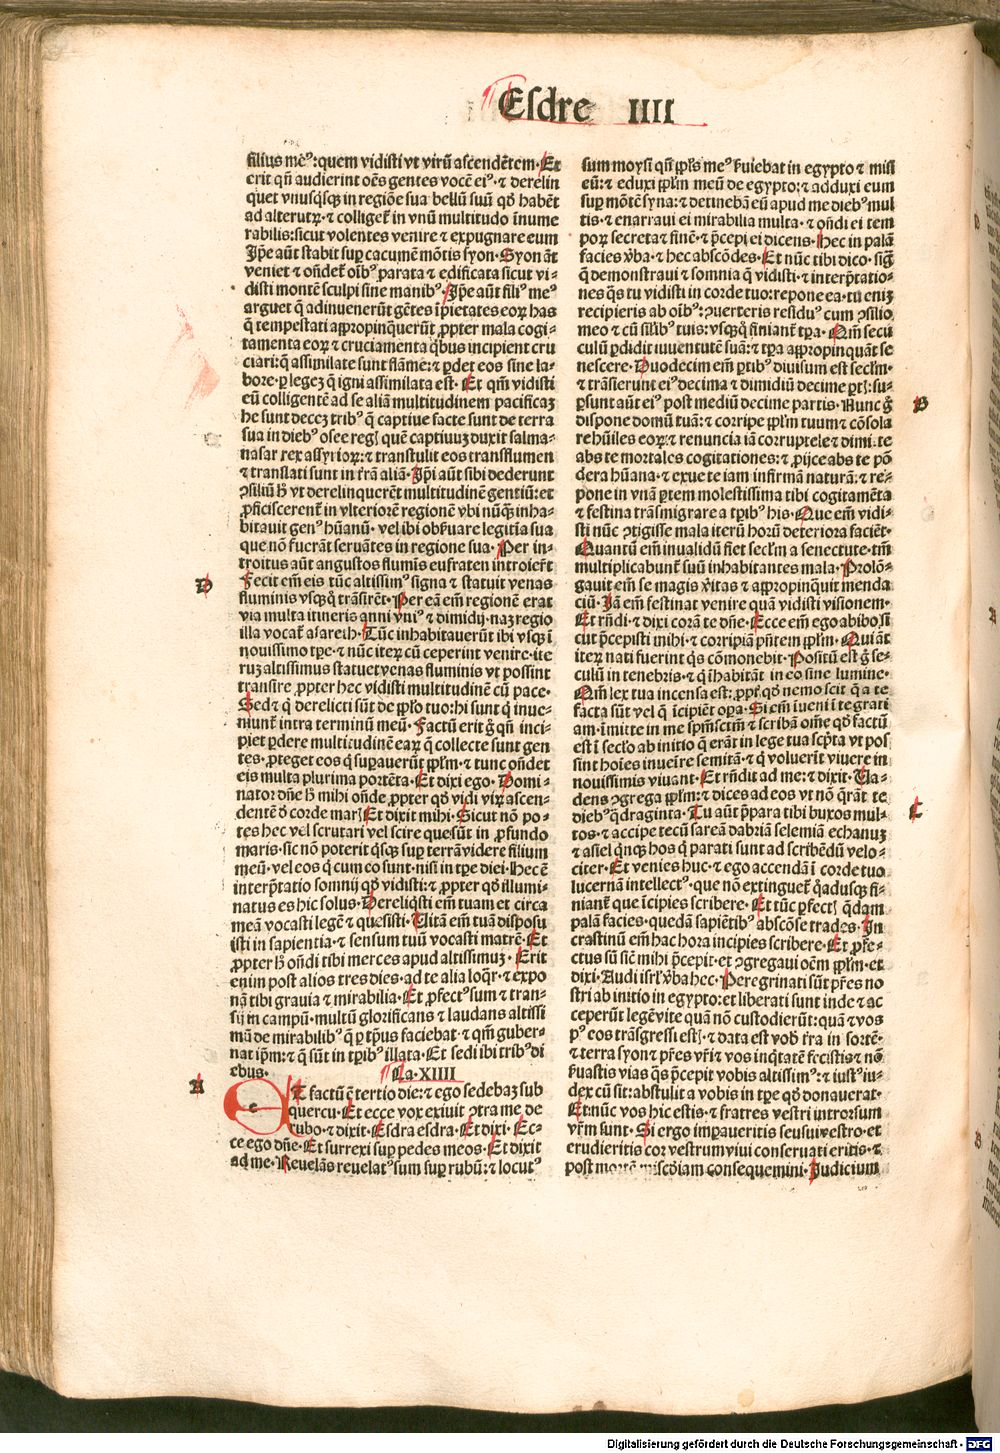 Eſdre IIII
filius meꝰ: quem vidiſti vt virū aſcendētem. Et
erit qn̄ audierint oēs gentes vocē eiꝰ. ⁊ derelin
quet vnuſqͥſqꝫ in regiōe ſua bellū ſuū qd̄ habēt
ad alterutꝝ. ⁊ colliget̄ in vnū multitudo īnume
rabilis: ſicut volentes venire ⁊ expugnare eum
Ip̄e aūt ſtabit ſuꝑ cacumē mōtis ſyon. Syon āt
veniet ⁊ on̄det̄ oībꝰ parata ⁊ edificata ſicut vi-
diſti montē ſculpi ſine manibꝰ. Ip̄e aūt filiꝰ meꝰ
arguet q̄ adinuenerūt gētes īpietates eoꝝ has
q̄ tempeſtati aꝓpinquerūt ꝓpter mala cogi-
tamenta eoꝝ ⁊ cruciamenta qͥbus incipient cru
ciari: q̄ aſſimilate ſunt flāme: ⁊ ꝑdet eos ſine la-
bore. ꝑ legeꝫ q̄ igni aſſimilata eſt. Et qm̄ vidiſti
eū colligentē ad ſe aliā multitudinem pacificaꝫ
he ſunt deceꝫ tribꝰ q̄ captiue facte ſunt de terra
ſua in diebꝰ oſee regꝭ quē captiuuꝫ duxit ſalma-
naſar rex aſſyrioꝝ: ⁊ tranſtulit eos tranſflumen
⁊ tranſlati ſunt in t̄rā aliā. Ip̄i aūt ſibi dederunt
ꝯſiliū h̄ vt derelinquerēt multitudinē gentiū: et
ꝓficiſcerent̄ in vlteriorē regionē vbi nūqꝫ inha-
bitauit genꝰ hūanū. vel ibi obſ̄uare legitīa ſua
que nō fuerāt ſeruātes in regione ſua. Per in-
troitus aūt anguſtos flumīs eufraten introier̄t
D
Fecit em̄ eis tūc altiſſimꝰ ſigna ⁊ ſtatuit venas
fluminis vſqꝫq̄ trāſirēt. Per eā em̄ regionē erat
via multa itineris anni vniꝰ ⁊ dimidij. naꝫ regio
illa vocat̄ aſareth. Tūc inhabitauerūt ibi vſqꝫ ī
nouiſſimo tꝑe. ⁊ nūc iteꝝ cū ceperint venire. ite
ruꝫ altiſſimus ſtatuet venas fluminis vt poſſint
tranſire. ꝓpter hec vidiſti multitudinē cū pace.
Sed ⁊ q̄ derelicti ſūt de ꝓp̄lo tuo: hi ſunt q̄ inue-
niunt̄ intra terminū meū. Factū erit ḡ qn̄ inci-
piet ꝑdere multitudinē eaꝝ q̄ collecte ſunt gen
tes. ꝓteget eos q̄ ſuꝑauerūt ꝓp̄lm. ⁊ tunc on̄det
eis multa plurima portēta. Et dixi ego. Domi-
nator dn̄e h̄ mihi on̄de. ꝓpter qd̄ vidi viꝝ aſcen-
dentē ð corde marꝭ Et dixit mihi. Sicut nō po-
tes hec vel ſcrutari vel ſcire que ſūt in ꝓfundo
maris. ſic nō poterit qͥſqꝫ ſuꝑ terrā videre filium
meū. vel eos q̄ cum co ſunt. niſi in tꝑe diei. Hec ē
interp̄tatio ſomnij qd̄ vidiſti: ⁊ ꝓpter qd̄ illumi-
natus es hic ſolus. Dereliqͥſti em̄ tuam et circa
meā vocaſti legē ⁊ queſiſti. Uitā em̄ tuā diſpoſu
iſti in ſapientia. ⁊ ſenſum tuū vocaſti matrē. Et
ꝓpter h̄ on̄di tibi merces apud altiſſimuꝫ. Erit
enim poſt alios tres dies. ad te alia loqr̄. ⁊ expo
nā tibi grauia ⁊ mirabilia. Et ꝓfectꝰ ſum ⁊ tran-
ſij in campū. multū glorificans ⁊ laudans altiſſi
mū de mirabilibꝰ q̄ ꝑ tp̄us faciebat. ⁊ qm̄ guber-
nat ip̄m: ⁊ q̄ ſūt in tꝑibꝰ illata. Et ſedi ibi tribꝰ di
ebus. Ca. XIIII
A
e T factū ē tertio die: ⁊ ego ſedebaꝫ ſub
quercu. Et ecce vox exiuit ꝯtra me de
rubo. ⁊ dixit. Eſdra eſdra. Et dixi. Ec-
ce ego dn̄e. Et ſurrexi ſuꝑ pedes meos. Et dixit
ad me. Reuelās reuelatꝰ ſum ſuꝑ rubū: ⁊ locutꝰ
ſum moyſi qn̄ ꝓp̄ls meꝰ ſ̄uiebat in egypto ⁊ miſi
eū: ⁊ eduxi ꝓp̄lm meū de egypto: ⁊ adduxi eum
ſuꝑ mōtē ſyna: ⁊ detinebā eū apud me diebꝰ mul
tis. ⁊ enarraui ei mirabilia multa. ⁊ on̄di ei tem
poꝝ ſecreta ⁊ finē. ⁊ p̄cepi ei dicens. Hec in palā
facies v̄ba. ⁊ hec abſcōdes. Et nūc tibi dico. ſiḡ
q̄ demonſtraui ⁊ ſomnia q̄ vidiſti. ⁊ interp̄tatio-
nes q̄s tu vidiſti in corde tuo: repone ea. tu eniꝫ
recipieris ab oībꝰ: ꝯuerteris reſiduꝰ cum ꝯſilio
meo ⁊ cū ſil̄ibꝰ tuis: vſqꝫq̄ finiant̄ tꝑa. Qm̄ ſecu
culū ꝑdidit iuuentutē ſuā: ⁊ tꝑa aꝓpinquāt ſe
neſcere. Duodecim em̄ ꝑtibꝰ diuiſum eſt ſecl̄m.
⁊ trāſierunt eiꝰ decima ⁊ dimidiū decime ꝑtꝭ: ſu-
ꝑſunt aūt eiꝰ poſt mediū decime partis. Nunc ḡ
B
diſpone domū tuā: ⁊ corripe ꝓp̄lm tuum ⁊ cōſola
re hūiles eoꝝ: ⁊ renuncia iā corruptele ⁊ dimitte
abs te mortales cogitationes: ⁊ ꝓijce abs te pō
dera hūana. ⁊ exue te iam infirmā naturā: ⁊ re-
pone in vnā ꝑtem moleſtiſſima tibi cogitamēta
⁊ feſtina trāſmigrare a tꝑibꝰ his. Que em̄ vidi-
ſti nūc ꝯtigiſſe mala iterū horū deteriora faciēt.
Quantū em̄ inualidū fiet ſecl̄m a ſenectute. tm̄
multiplicabunt̄ ſuꝑ inhabitantes mala. Prolō-
gauit em̄ ſe magis v̄itas ⁊ aꝓpinqͣuit menda
ciū. Iā em̄ feſtinat venire quā vidiſti viſionem.
Et rn̄di. ⁊ dixi corā te dn̄e. Ecce em̄ ego abibo ſi
cut p̄cepiſti mihi. ⁊ corripiā p̄ntem ꝓp̄lm. Qui āt
iteꝝ nati fuerint qͥs cōmonebit. Poſitū eſt ḡ ſe-
culū in tenebris. ⁊ q̄ īhabitāt in eo ſine lumine.
Qm̄ lex tua incenſa eſt: ꝓpt̄ qd̄ nemo ſcit q̄ a te
facta ſūt vel q̄ īcipiēt oꝑa. Si em̄ īueni ī te grati
am. īmitte in me ſpm̄ſctm̄ ⁊ ſcribā oīne qd̄ factū
eſt ī ſecl̄o ab initio q̄ erāt in lege tua ſcp̄ta vt poſ
ſint hoīes inueīre ſemitā. ⁊ q̄ voluerīt viuere in
nouiſſimis viuant. Et rn̄dit ad me: ⁊ dixit. Ua-
dens ꝯgrega ꝓp̄lm: ⁊ dices ad eos vt nō q̄rāt te
diebꝰ qͣdraginta. Tu aūt p̄para tibi buxos mul-
C
tos. ⁊ accipe tecū ſareā dabriā ſelemiā echanuꝫ
⁊ aſiel qͥnqꝫ hos q̄ parati ſunt ad ſcribēdū velo-
citer. Et venies huc. ⁊ ego accendā ī corde tuo
lucernā intellectꝰ. que nō extinguet̄ qͣduſqꝫ fi-
niant̄ que īcipies ſcribere. Et tūc ꝑfectꝭ q̄dam
palā facies. quedā ſapiētibꝰ abſcōſe trades. In
craſtinū em̄ hac hora incipies ſcribere. Et ꝓfe-
ctus ſū ſic̄ mihi p̄cepit. et ꝯgregaui oēm ꝓp̄lm. et
dixi. Audi iſrl̄ v̄ba hec. Peregrinati ſūt pr̄es no
ſtri ab initio in egypto: et liberati ſunt inde ⁊ ac
ceperūt legē vite quā non cuſtodierūt: quā ⁊ vos
pꝰ eos trāſgreſſi eſtꝭ. ⁊ data eſt vob̄ t̄ra in ſortē.
⁊ terra ſyon ⁊ pr̄es vr̄i ⁊ vos inqͥtatē feciſtis ⁊ nō
ſ̄uaſtis vias q̄s p̄cepit vobis altiſſimꝰ: ⁊ iuſtꝰ iu-
dex cū ſit: abſtulit a vobis in tꝑe qd̄ donauerat.
Et nūc vos hic eſtis. ⁊ fratres veſtri introrſum
vr̄m ſunt. Si ergo imꝑaueritis ſeuſui veſtro. et
erudieritis cor veſtrum viui conſeruati eritis. ⁊
poſt mortē miſcd̄iam conſequemini. Judicium
Digitalisierung gefördert durch die Deutsche Forschungsgemeinschaft - DFG